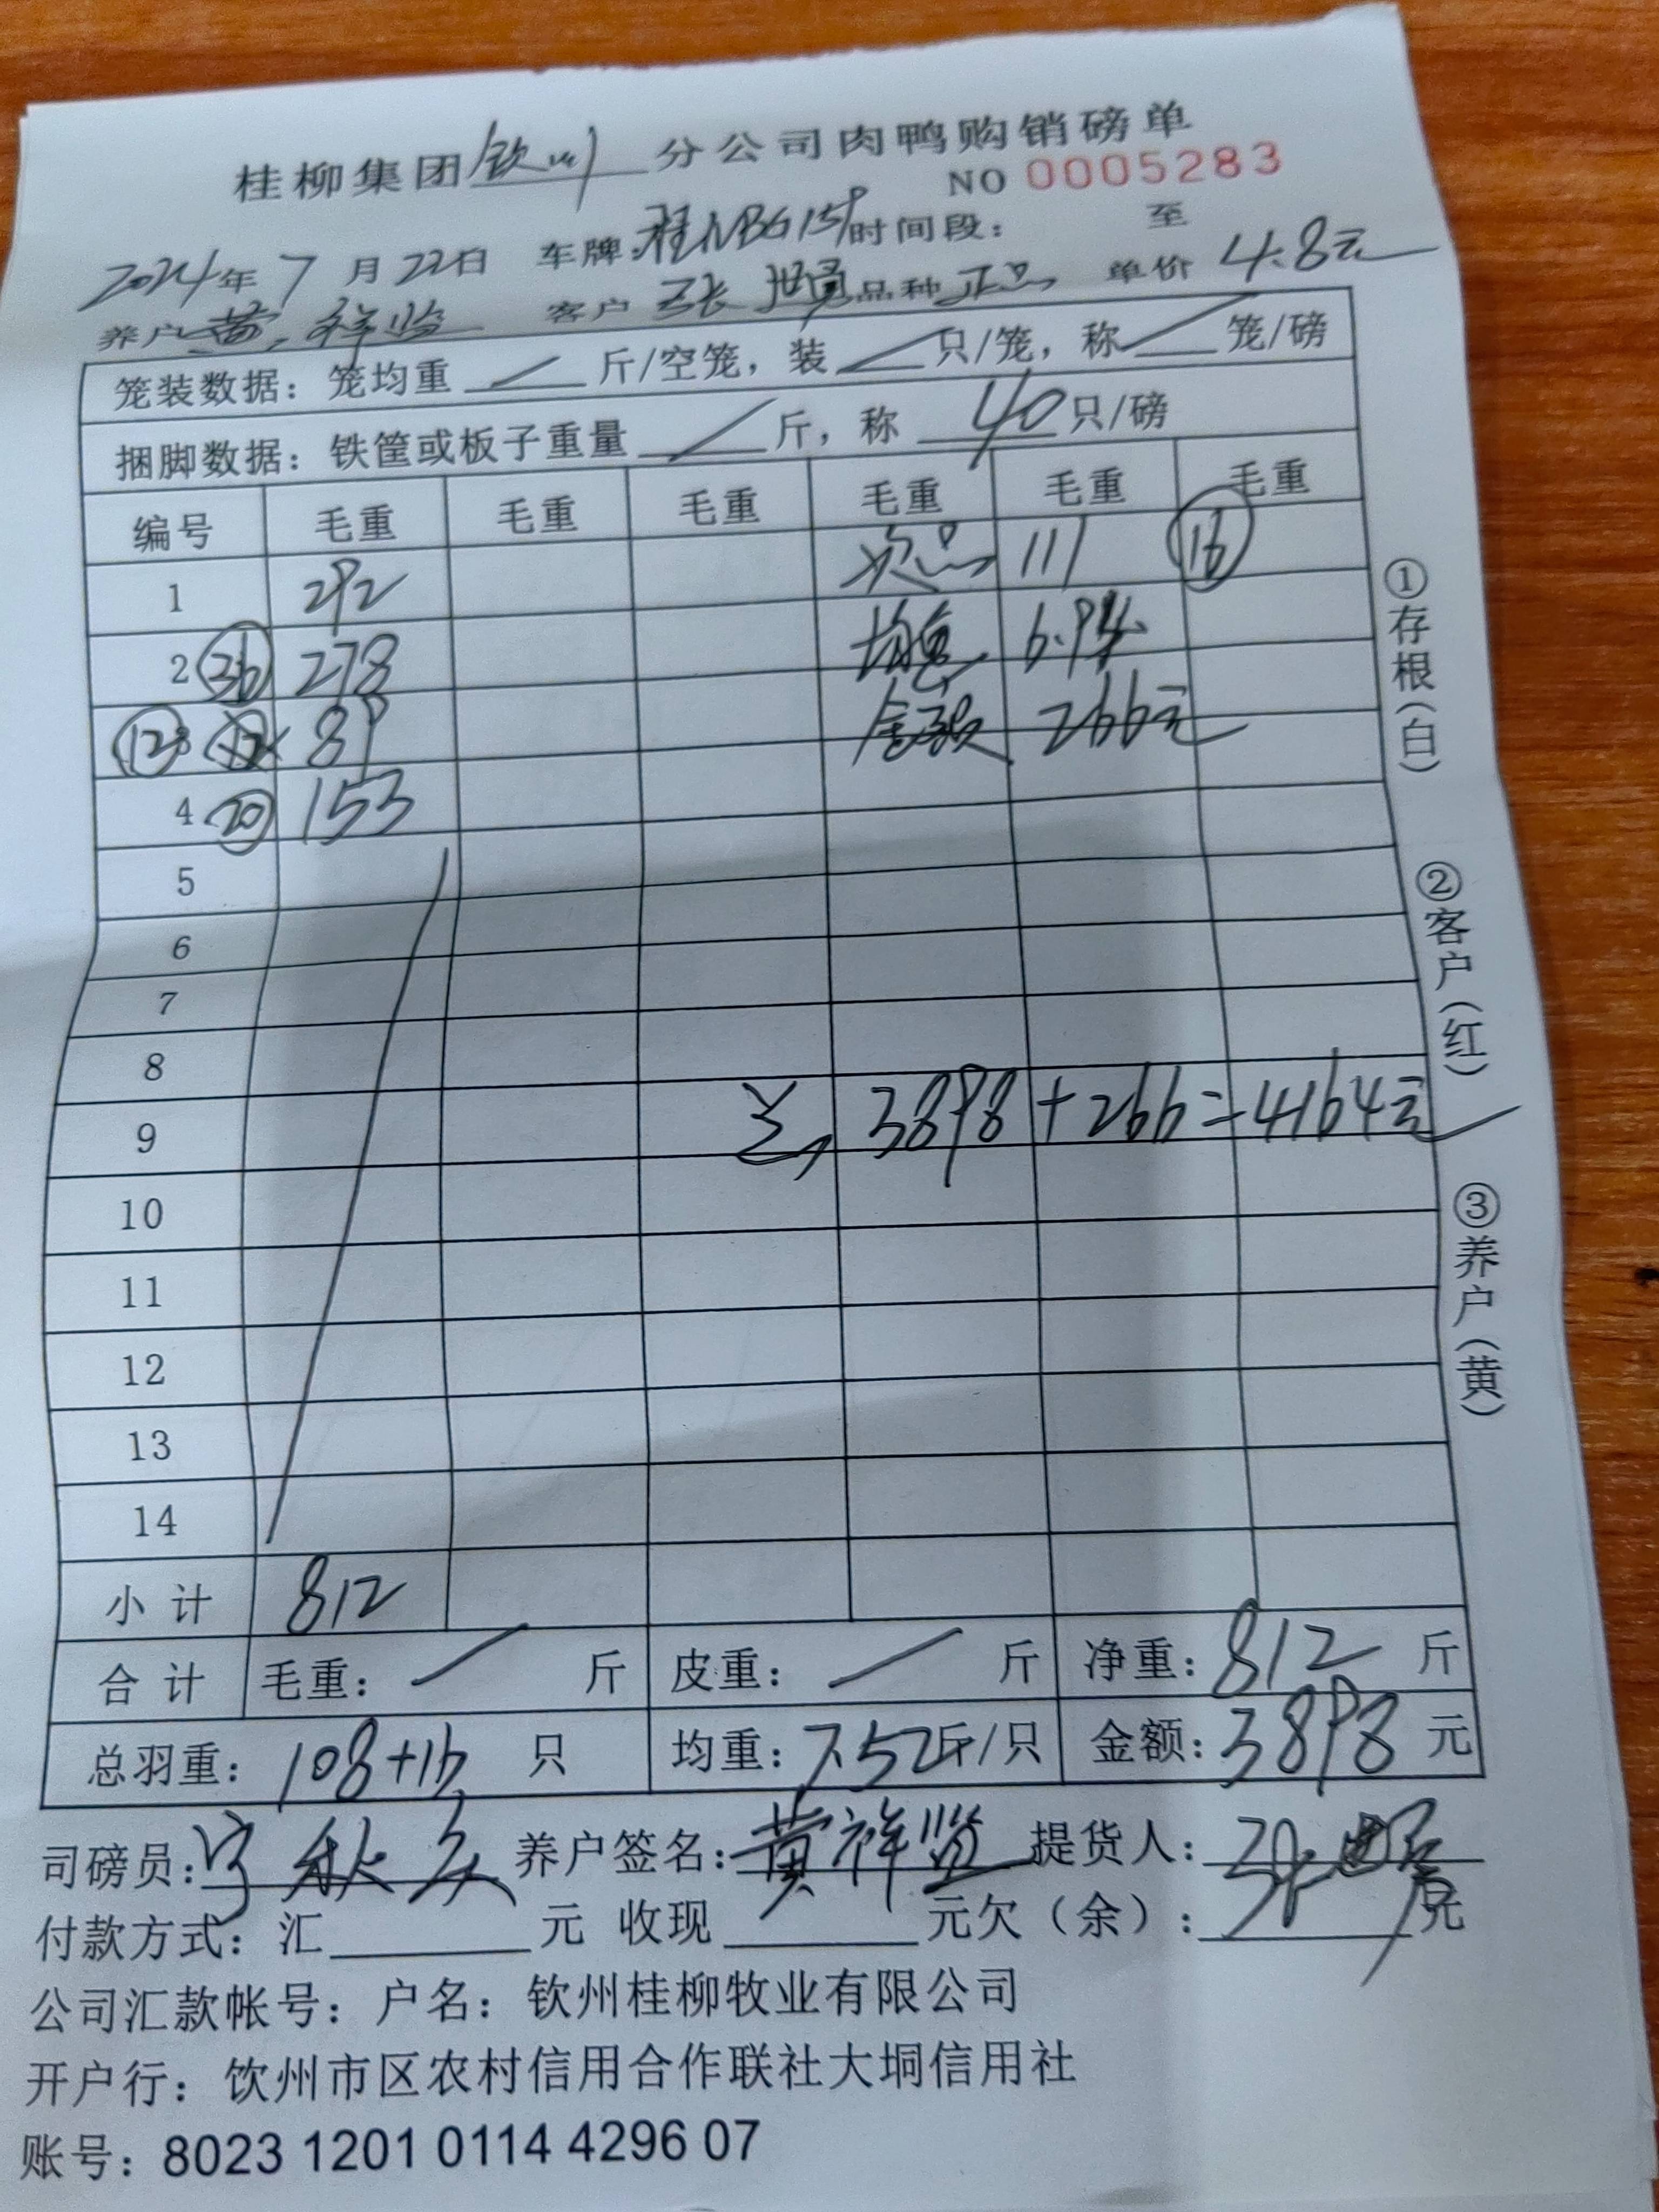 桂柳集团钦州分公司肉鸭购销磅单
NO 0005283
2024年7月22日 车牌:桂NBG159 时间段: 至
养户 黄祥监 客户 张 品种 正品 单价 4.8元
笼装数据: 笼均重 / 斤/空笼, 装 / 只/笼, 称 / 笼/磅
捆脚数据: 铁筐或板子重量 / 斤, 称 40 只/磅
编号 毛重 毛重 毛重 毛重 毛重 毛重
1 292 次品 111 ⑯
2 ㊱ 278 均重 6.94
3 ⑫ 89 金额 266元
4 ⑳ 153
5
6
7
8
9 3898+266=4164元
10
11
12
13
14
小计 812
合计 毛重: / 斤 皮重: / 斤 净重: 812 斤
总羽重: 108+16 只 均重: 7.52斤/只 金额: 3898 元
司磅员: 宁秋 养户签名: 黄祥监 提货人: 张
付款方式: 汇 元 收现 元欠(余): 元
公司汇款帐号: 户名: 钦州桂柳牧业有限公司
开户行: 钦州市区农村信用合作联社大垌信用社
账号: 8023 1201 0114 4296 07
①存根(白)
②客户(红)
③养户(黄)